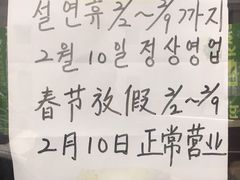 설연휴 2/2~2/9 까지
2月 10일 정상영업
春节放假 2/2~2/9
2月10日 正常营业